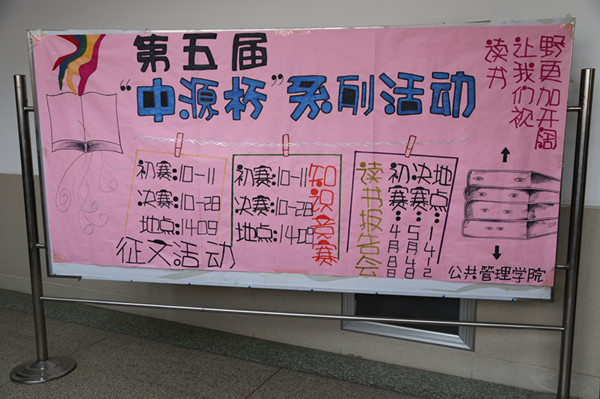 第五届
“中源杯”系列活动
读书
让我们视
野更加开阔
初赛:10-11
决赛:10-28
地点:1409
征文活动
初赛:10-11
决赛:10-28
地点:1409
知识竞赛
读书报告会
初赛:4月8日
决赛:5月4日
地点:1412
公共管理学院